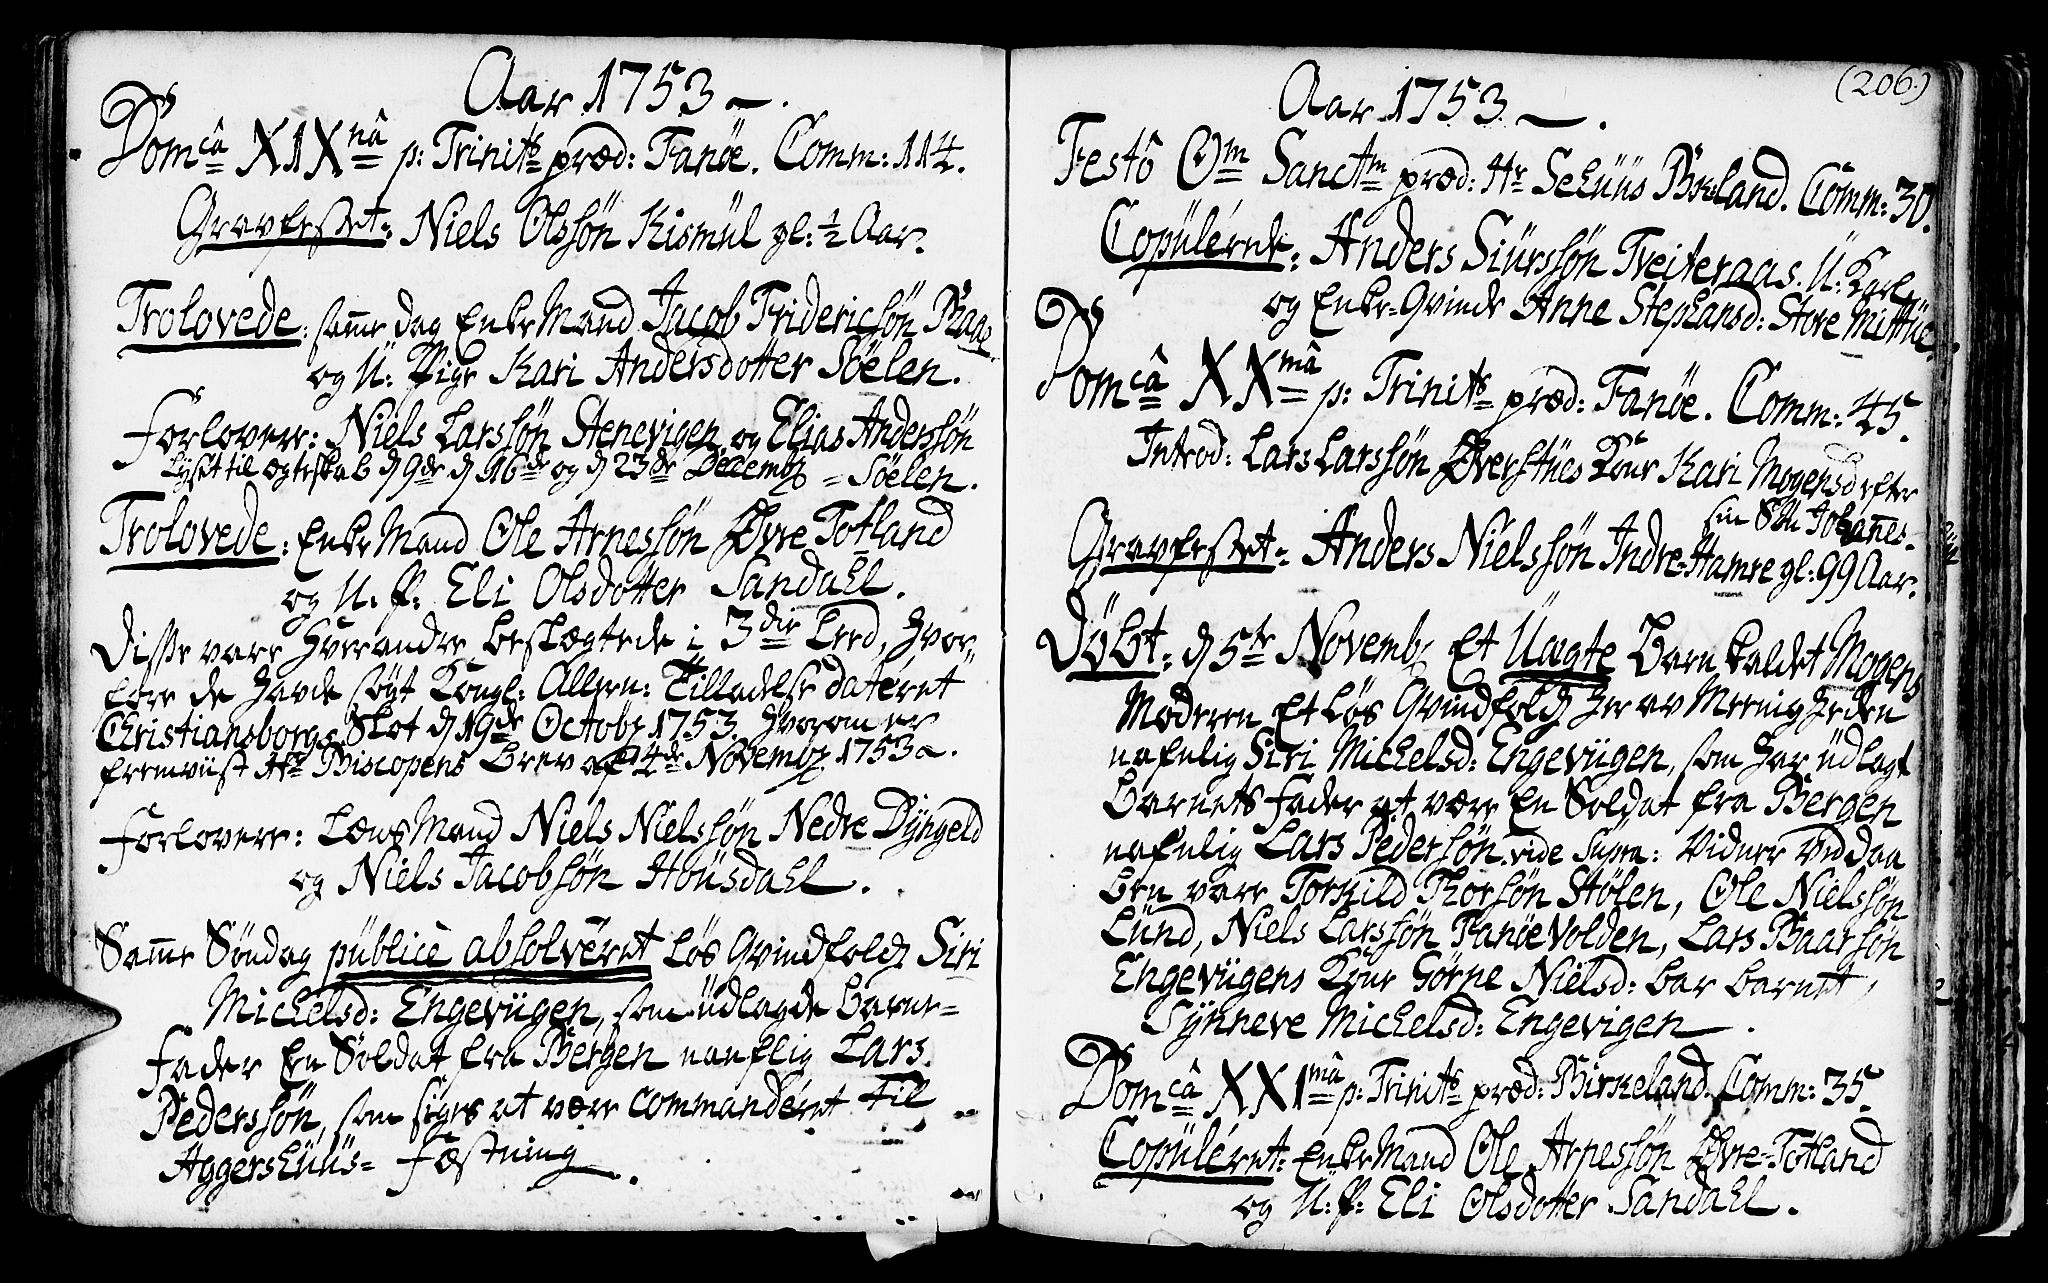 Aar 1753 —.
Domcâ XIXnâ p: Trinits præd: Fanøe. Comm: 114.
Gravfestet: Niels Olssøn Kismül gl: ½ Aar.
Trolovede: samme dag Enke Mand Jacob Fridericsøn Raae
og U: Pige Kari Andersdotter Söelen.
Forlovere: Niels Larssøn Stenevigen og Elias Anderssøn
Lyset til ægteskab d 9de d 16de og d 23de Decembr = Söelen.
Trolovede: Enke Mand Ole Arnessøn Øvre Totland
og U. P: Eli Olsdotter Sandahl.
Disse vare Hverandre beslægtede i 3die Leed, hvor-
fore de havde søgt Kongl: Allern: Tilladelse dateret
Christiansborgs Slot d 19de Octobr 1753. hvorom er
fremviist Hr Biscopens Brev af 4de Novembr 1753.
Forlovere: Lænsmand Niels Nielssøn Nedre Dÿngeld
og Niels Jacobsøn Houisdahl.
Samme Søndag püblicè absolveret Løs Qvindfolch Siri
Michelsd: Engevügen, som üdlagde Barne-
fader En Soldat fra Bergen nauflig Lars
Pederssøn, som siges at være commanderet till
Aggershuüs= Fæstning.
(206)
Aar 1753 —.
Festô Om Sanctm præd: Hr Sehuüs Birkeland. Comm: 30.
Copülerede: Anders Siurssøn Tveiteraas. U: Karl
og Enke-Qvinde Anne Stephansd: Store Mittüe.
Domcâ XXmâ p: Trinits præd: Fanøe. Comm: 45.
Introd: Lars Larssøn Øverstües Kone Kari Mogensd efter
sin Søn Johannes.
Gravfestet: Anders Nielssøn Indre-Hamre gl: 99 Aar.
Døbt: d 5te Novembr Et Üægte Barn kaldet Mogens
Moderen Et Løs Qvindfolch her av Meenigheden
nafnlig Siri Michelsd: Engevügen, som har üdlagt
Barnets Fader at være En Soldat fra Bergen
nafnlig Lars Pederssøn. vide supra: Vidner ved Daa
ben vare Torkild Thorsøn Stølen, Ole Nielssøn
Lünd, Niels Larssøn Fanøe Volden, Lars Baarsøn
Engevügens Kone Gørne Nielsd: bar barnet,
Synneve Michelsd: Engevigen.
Domcâ XXImâ p: Trinits præd: Birkeland. Comm: 35.
Copüleret: Enke Mand Ole Arnessøn Øvre-Totland
og U: P: Eli Olsdotter Sandahl.